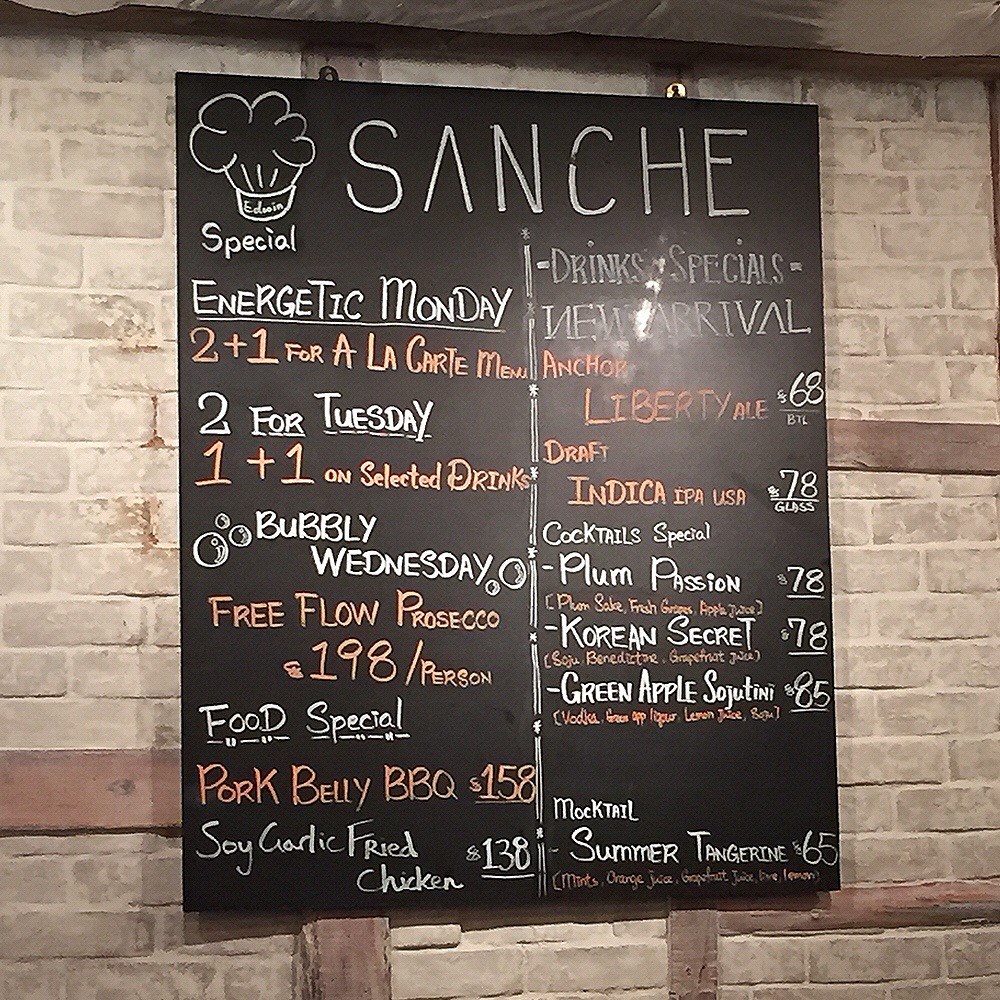 SANCHE
Edwin
Special
ENERGETIC MONDAY
2+1 FOR A LA CARTE MENU
2 FOR TUESDAY
1+1 ON Selected DRINKS
BUBBLY
WEDNESDAY
FREE FLOW PROSECCO
$198/PERSON
FOOD Special
PORK BELLY BBQ $158
Soy Garlic Fried
Chicken $138
-DRINKS SPECIALS-
NEW ARRIVAL
ANCHOR
LIBERTY ALE $68
BTL
DRAFT
INDICA IPA USA $78
GLASS
COCKTAILS Special
-Plum PASSION $78
[Plum Sake, Fresh Grapes, Apple Juice]
-KOREAN SECRET $78
[Soju, Benedictine, Grapefruit Juice]
-GREEN APPLE Sojutini $85
[Vodka, Green app liqour, Lemon Juice, Soju]
MOCKTAIL
- SUMMER TANGERINE $65
[Mints, Orange Juice, Grapefruit Juice, lime, lemon]